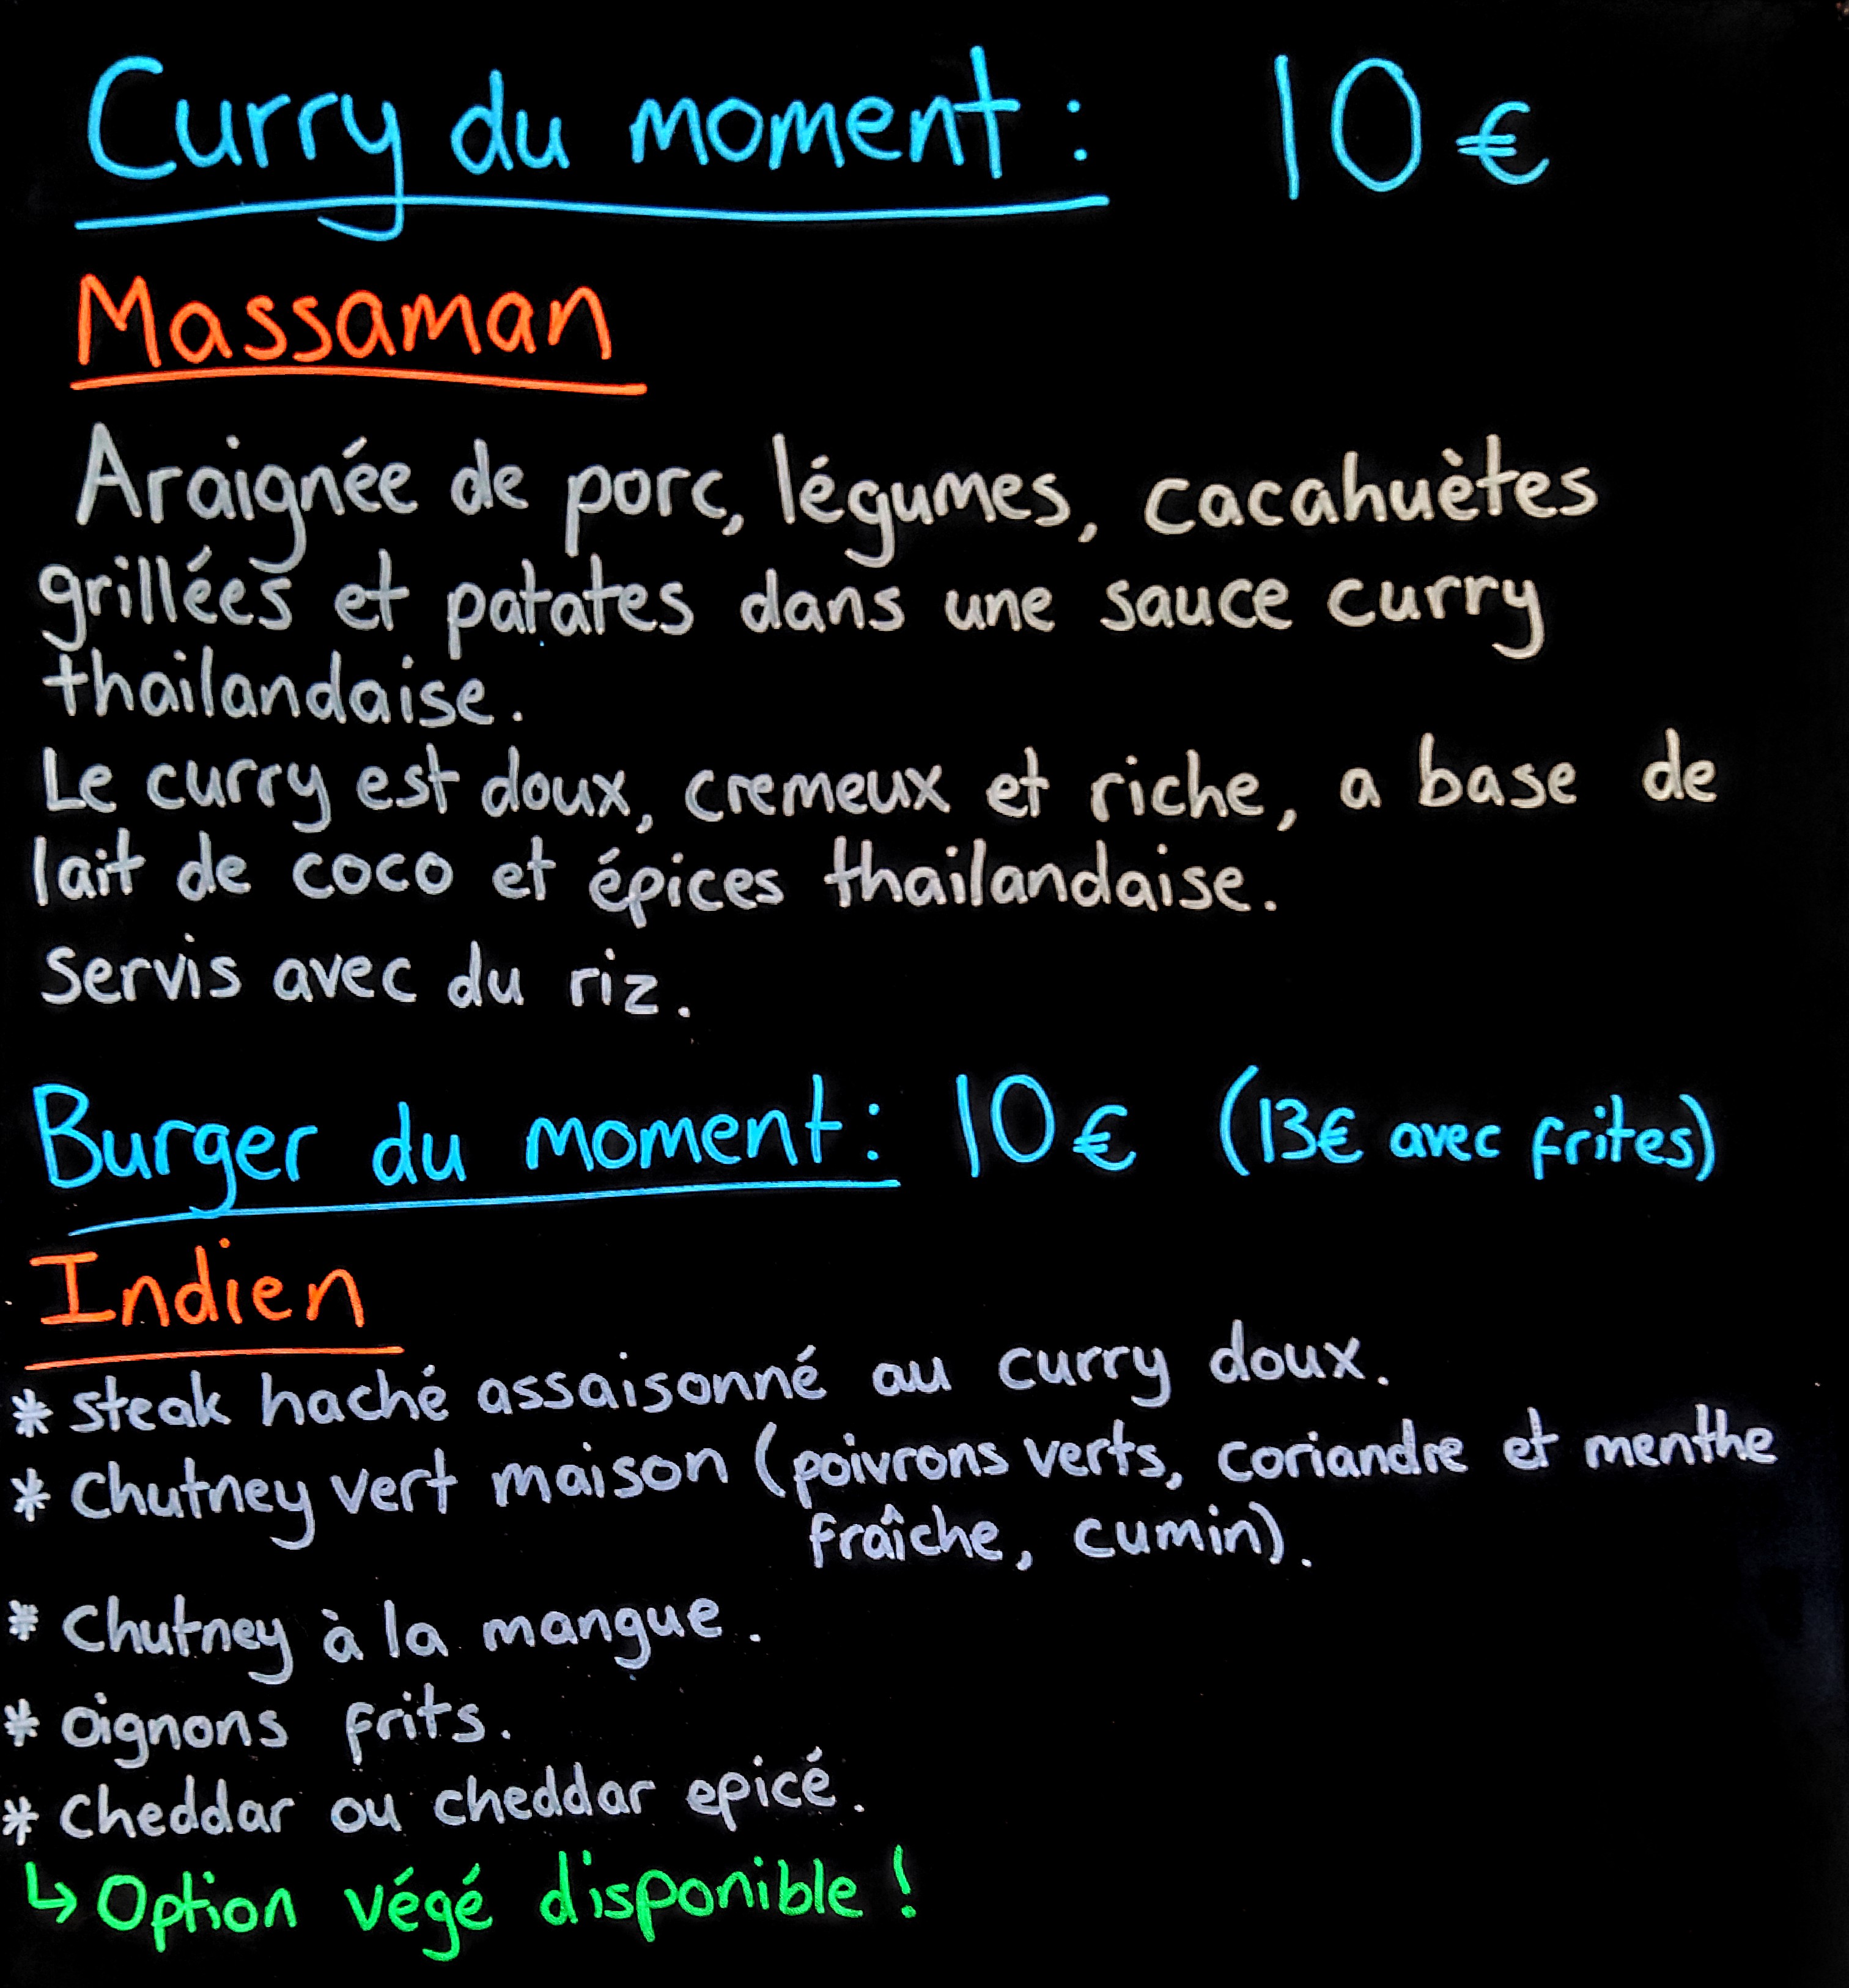 Curry du moment : 10 €
Massaman
Araignée de porc, légumes, cacahuètes
grillées et patates dans une sauce curry
thailandaise.
Le curry est doux, cremeux et riche, a base de
lait de coco et épices thailandaise.
Servis avec du riz.
Burger du moment : 10 € (13€ avec frites)
Indien
* steak haché assaisonné au curry doux.
* Chutney vert maison (poivrons verts, coriandre et menthe
fraîche, cumin).
* Chutney à la mangue.
* oignons frits.
* Cheddar ou cheddar epicé.
↳ Option végé disponible !